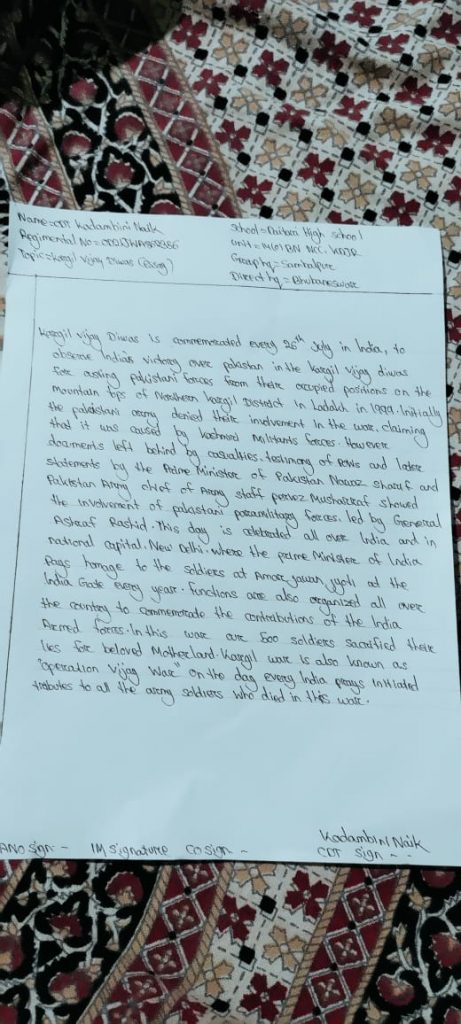 Name = CDT Kadambini Naik
School = Daitari High school
Regimental No =
Unit = BN NCC
Topic = Kargil Vijay Diwas (Essay)
Group hq = Sambalpure
Direct hq = Bhubaneswar
Kargil Vijay Diwas Is commemorated every 26th July in India, to
observe India's victory over pakistan in the Kargil Vijay diwas
for ousting pakistani forces from there occupied positions on the
mountain tops of Northern Kargil District in Ladakh in 1999. Initially
the pakistani army denied there involvement In the war, claiming
that it was caused by kashmiri Militants forces. However
documents left behind by casualties, testimony of POWs and later
statements by the Prime Minister of Pakistan Nawaz sharif and
Pakistan Army chief of Army staff pervez Musharraf showed
the Involvement of pakistani paramilitary forces. led by General
Ashraf Rashid. This day is celebrated all over India and in
national capital. New Delhi. where the prime Minister of India
Pays homage to the soldiers at Amar jawan jyoti at the
India Gate every year. functions are also organized all over
the country to commemorate the contributions of the India
Armed forces. In this war are 500 soldiers sacrified there
lies for beloved Motherland. Kargil war is also known as
"Operation Vijay War" on the day every India prays Initiated
tributes to all the army soldiers who died in this war.
Kadambini Naik
ANO Sign - IM Signature CO Sign - CDT Sign - -